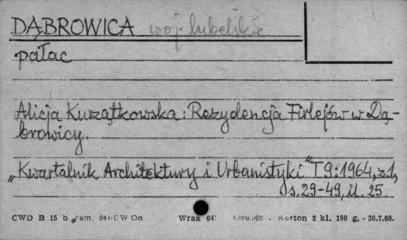 DĄBROWICA woj. lubelskie
pałac
Alicja Kurzątkowska: Rezydencja Firlejów w Dą-
browicy.
„Kwartalnik Architektury i Urbanistyki" T9:1964, z.1,
s. 29-49, il. 25
CWD B 15 b zam. CW On Wrak 64 Karton 5 kl. 180 g, - 30.7.68.